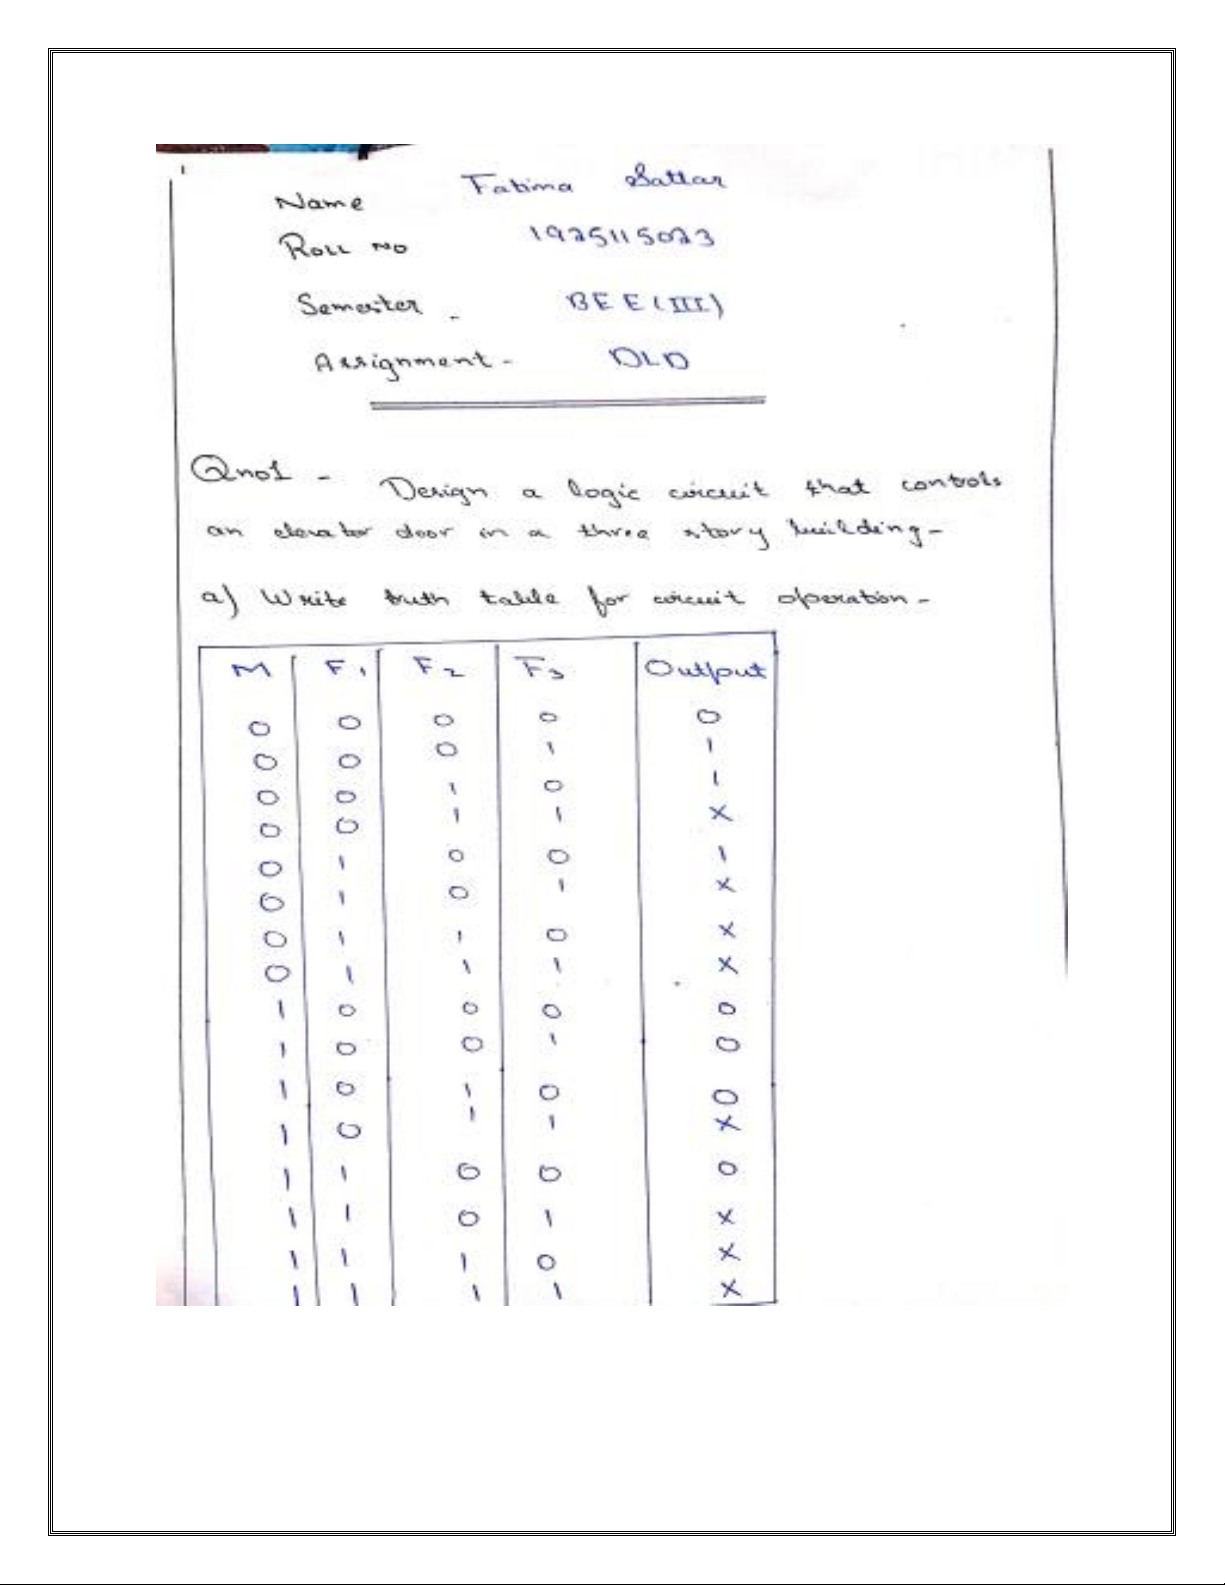 Name Fatima Sattar
Roll No 1925115023
Semester - BEE(III)
Assignment - DLD
Qno1 - Design a logic circuit that controls
an elevator door in a three story building -
a) Write truth table for circuit operation -
M F1 F2 F3 Output
0 0 0 0 0
0 0 0 1 1
0 0 1 0 1
0 0 1 1 X
0 1 0 0 1
0 1 0 1 X
0 1 1 0 X
0 1 1 1 X
1 0 0 0 0
1 0 0 1 0
1 0 1 0 0
1 0 1 1 X
1 1 0 0 0
1 1 0 1 X
1 1 1 0 X
1 1 1 1 X